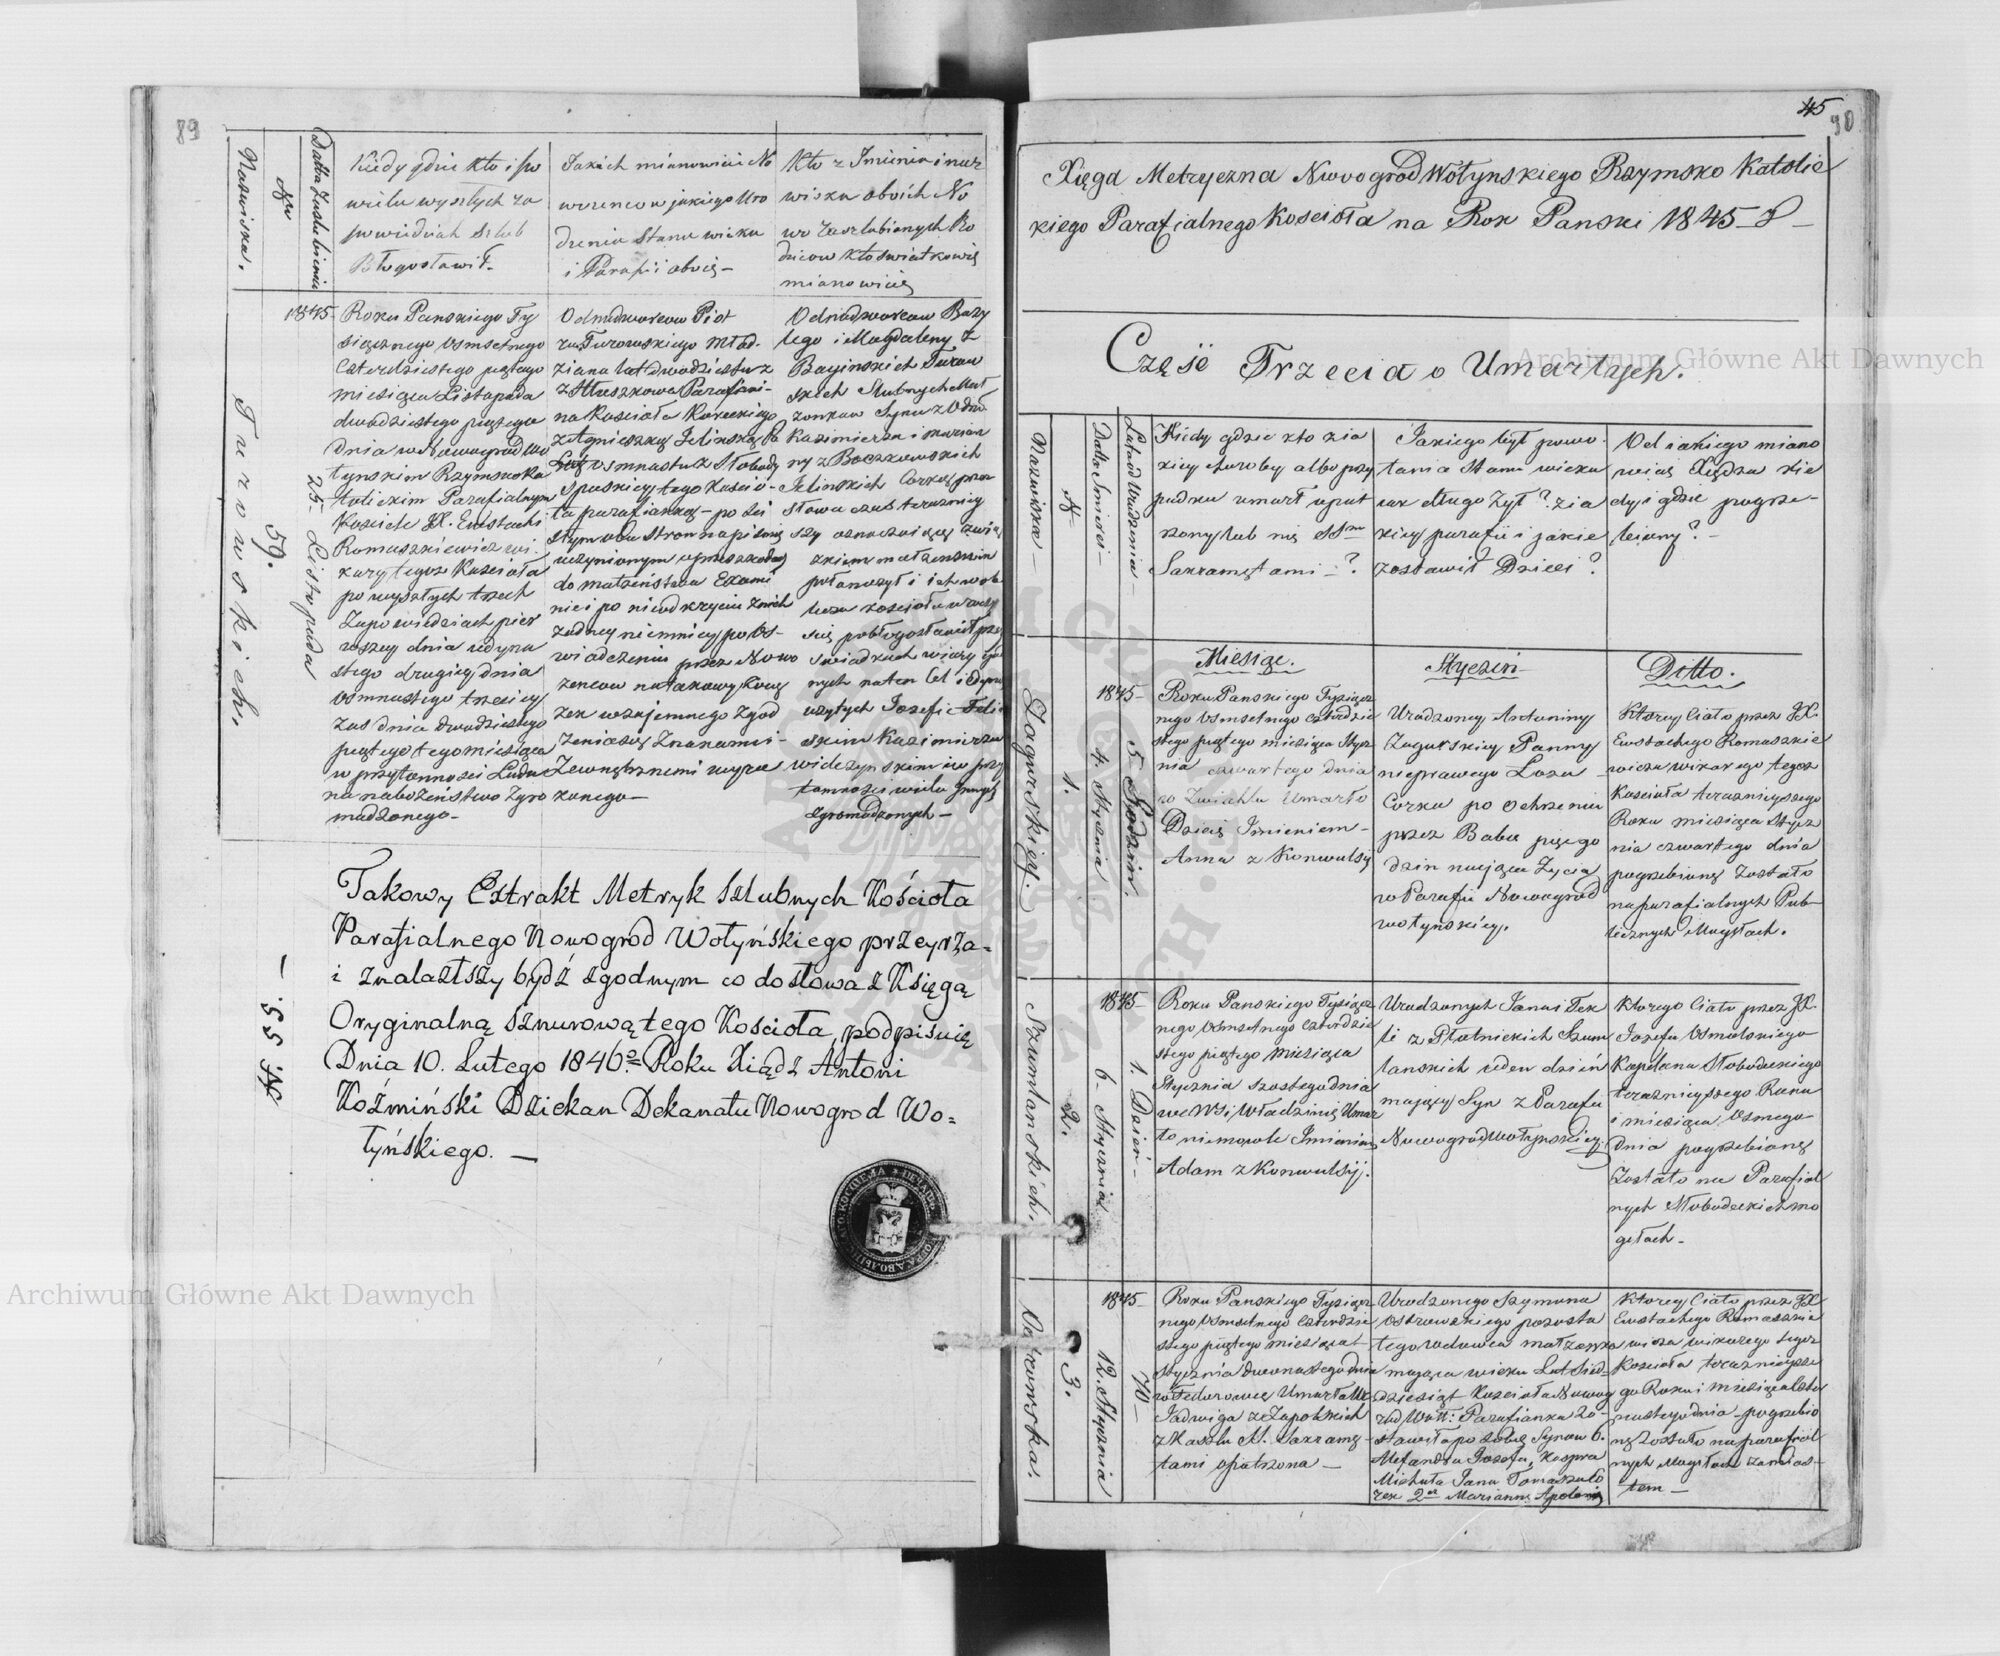 89
Nazwiska.
Nru
Datta Zaslubienia
Kiedy gdzie kto i po
wielu wyszłych za
powiedziah szlub
Błogosławił.
Jakich mianowicie No
wozencow jakiego Uro
dzenia Stanu wieku
i Parafii oboię –
Kto z Imienia i naz
wiska oboich No
wo Zaszlubionych Ro
dzicow kto swiatkowie
mianowicię
Turowskich.
59.
25. Listopada
1845-
Roku Panskiego Ty
siącznego osmsetnego
czterdziestego piątego
miesiąca Listopada
dwudziestego piątego
Dnia w Nowogrod Wo
łynskim Rzymskoka
tolickim Parafialnym
Kosciele JX. Eustachi
Romaszkiewicz wi-
kary tegoż Kosciola
po wyszłych trzech
Zapowiedziach pier
wszey dnia iedyna
stego drugiey dnia
osmnastego trzeciey
zas dnia dwudziestego
piątego tego miesiąca
w przytomności Ludu
na nabożeństwo zgro
madzonego–
Odnodworcow Piot
ra Turowskiego Mlod-
ziana lat dwadziestu z
z Hluszkowa Parafiani-
na Kosciola Koreckiego
z Agnieszką Jelinską Pa
Lat osmnastu z Słobody
Spaskiey tego Koscio-
ła parafianką – po Lei
stym obu Stron napilnię
uczynionym o przeszkodę
do małżeństwa Exami
nie i po nieodkryciu żnich
żadney niemniey po Os-
wiadczeniu przez Nowo
żencow natakowy Zwią
zek wzajemnego zgod
zenia się Znakami-
Zewnętrznemi wyra
żonego–
Odnodworcow Bazy
lego i Magdaleny z
Bayinskich Turow
skich Slubnych Mał
żonkow Syna z Odno
Kazimierza i Marian
ny z Boczkowskich
Jelinskich Corkę, przez
słowa czas teraźniey
szy oznaczaięcę zwią
zkiem małżenskim
połonczył i ich w ob
liczu kosciola uroczy
scię pobłogosławił przy
swiadkach wiary god
nych na ten Cel i Oyow
użytych Jozefie Felin
skim Kazimierzu
Wiliczynskim i w przy
tomności wielu Innych
zgromadzonych–
№ 55. –
Takowy Estrakt Metryk Szlubnych Kościoła
Parafialnego Nowogrod Wołyńskiego przeyrza-
i znalaztszy bydź zgodnym co do słowa z Księgą
Oryginalną sznurową tego Kościoła, podpisuię
Dnia 10. Lutego 1846.º Roku Xiądz Antoni
Koźmiński Dziekan Dekanatu Nowogrod Wo-
łyńskiego. —
45
90
Xięga Metryczna Nowogród Wołynskiego Rzymsko Katolic
kiego Parafialnego Kosciola na Rok Panski 1845 –
Częśc Trzecia o Umarłych.
Nazwiska –
№
Datta Smierci –
Lub od Urodzenia
Kiedy gdzie kto z ia
kiey choroby albo przy
padku umarł opat
rzony lub nię SSmi
Sakramętami –?
Jakiego był powo-
łania Stanu wieku
iak długo żył? z ia
kiey parafii i jakie
zostawił Dzieci?
Od iakiego miano
wicię Xiędza kie
dy i gdzie pogrze-
biony? –
Miesiąc.
Styczeń
Ditto.
Zagurskiey.
1.
4. Stycznia
5. Godzin.
1845-
Roku Panskiego Tysiącz
nego Osmsetnego Czterdzie
stego piątego miesiąca Stycz
nia czwartego dnia
w Zwiahlu umarło
Dziecię Imieniem–
Anna z Konwulsij
Urodzoney Antoniny
Zagurskiey Panny
nieprawego Łoza–
Corka po Ochrzcniu
przez Babu pięgo
dzin maiąca Zycia
w Parafii Nowogrod
wołynskiey.
Ktorey Ciało przez JX.
Eustachego Romaszkie
wicza wikarego tegoż
Kosciola teraznieyszego
Roku miesiąca Stycz
nia czwartego dnia
pogrzebionę zostało
na parafialnych Pub–
licznych Mogiłach.
Szumlanskich.
2.
6- Stycznia
1. Dzień –
1845-
Roku Panskiego Tysiącz
nego Osmsetnego Czterdzie
stego piątego Miesiąca
Stycznia szostego dnia
we Wsi Władzinię Umar
ło niemowle Imieniem
Adam z Konwulsij.
Urodzonych Jana i Tek
li z Płotnickich Szum
lanskich ieden dzień
maiący Syn z Parafii
Nowogrod wołynskiey.
Ktorego Ciało przez JX.
Jozefa Osmulskiego
Kapelana Słobodeckiego
teraznieyszego Roku
i miesiąca Osmego
Dnia pogrzebionę
Zostało na Parafial
nych Słobodeckich mo
giłach –
Ostrowska.
3.
12. Stycznia
70 –
1845-
Roku Panskiego Tysiącz
nego Osmsetnego Czterdzie
stego piątego miesiąca–
Stycznia dwunastego dnia
w Fedorowcę Umarła
Jadwiga z Zapolskich
z Kaszlu St. Sakramę–
tami opatrzona –
Urodzonego Szymona
Ostrowskiego pozosta
łego wdowca małżonka
maiąca wieku Lat Sied-
dziesiąt Kosciola Nowog
rod Woł: Parafianka Zo–
stawiła po sobię Synow 6.
Alexandra Jozefa, Kaspra
Michała Jana Tomasza Co
rek 2ch Mariannę Apolonię
Ktorey Ciało przez JX
Eustachego Romaszkie
wicza wikarego tegoż
Kosciola teraznieysze
go Roku i miesiąca czter
nastego dnia – pogrzebio
nę zostało na parafial
nych Mogiłach za mias–
tem –
Archiwum Główne Akt Dawnych
Archiwum Główne Akt Dawnych